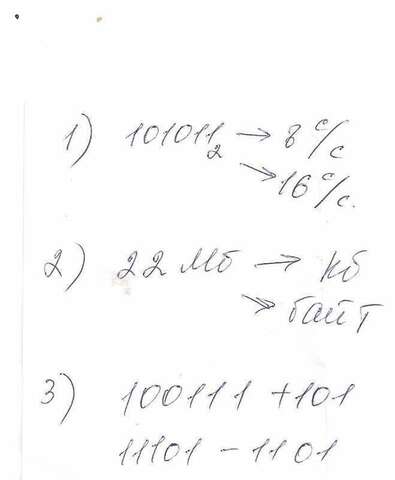 1) 101011₂ → 8 с/с
→ 16 с/с.
2) 22 Мб → Кб
→ байт
3) 100111 + 101
11101 - 1101